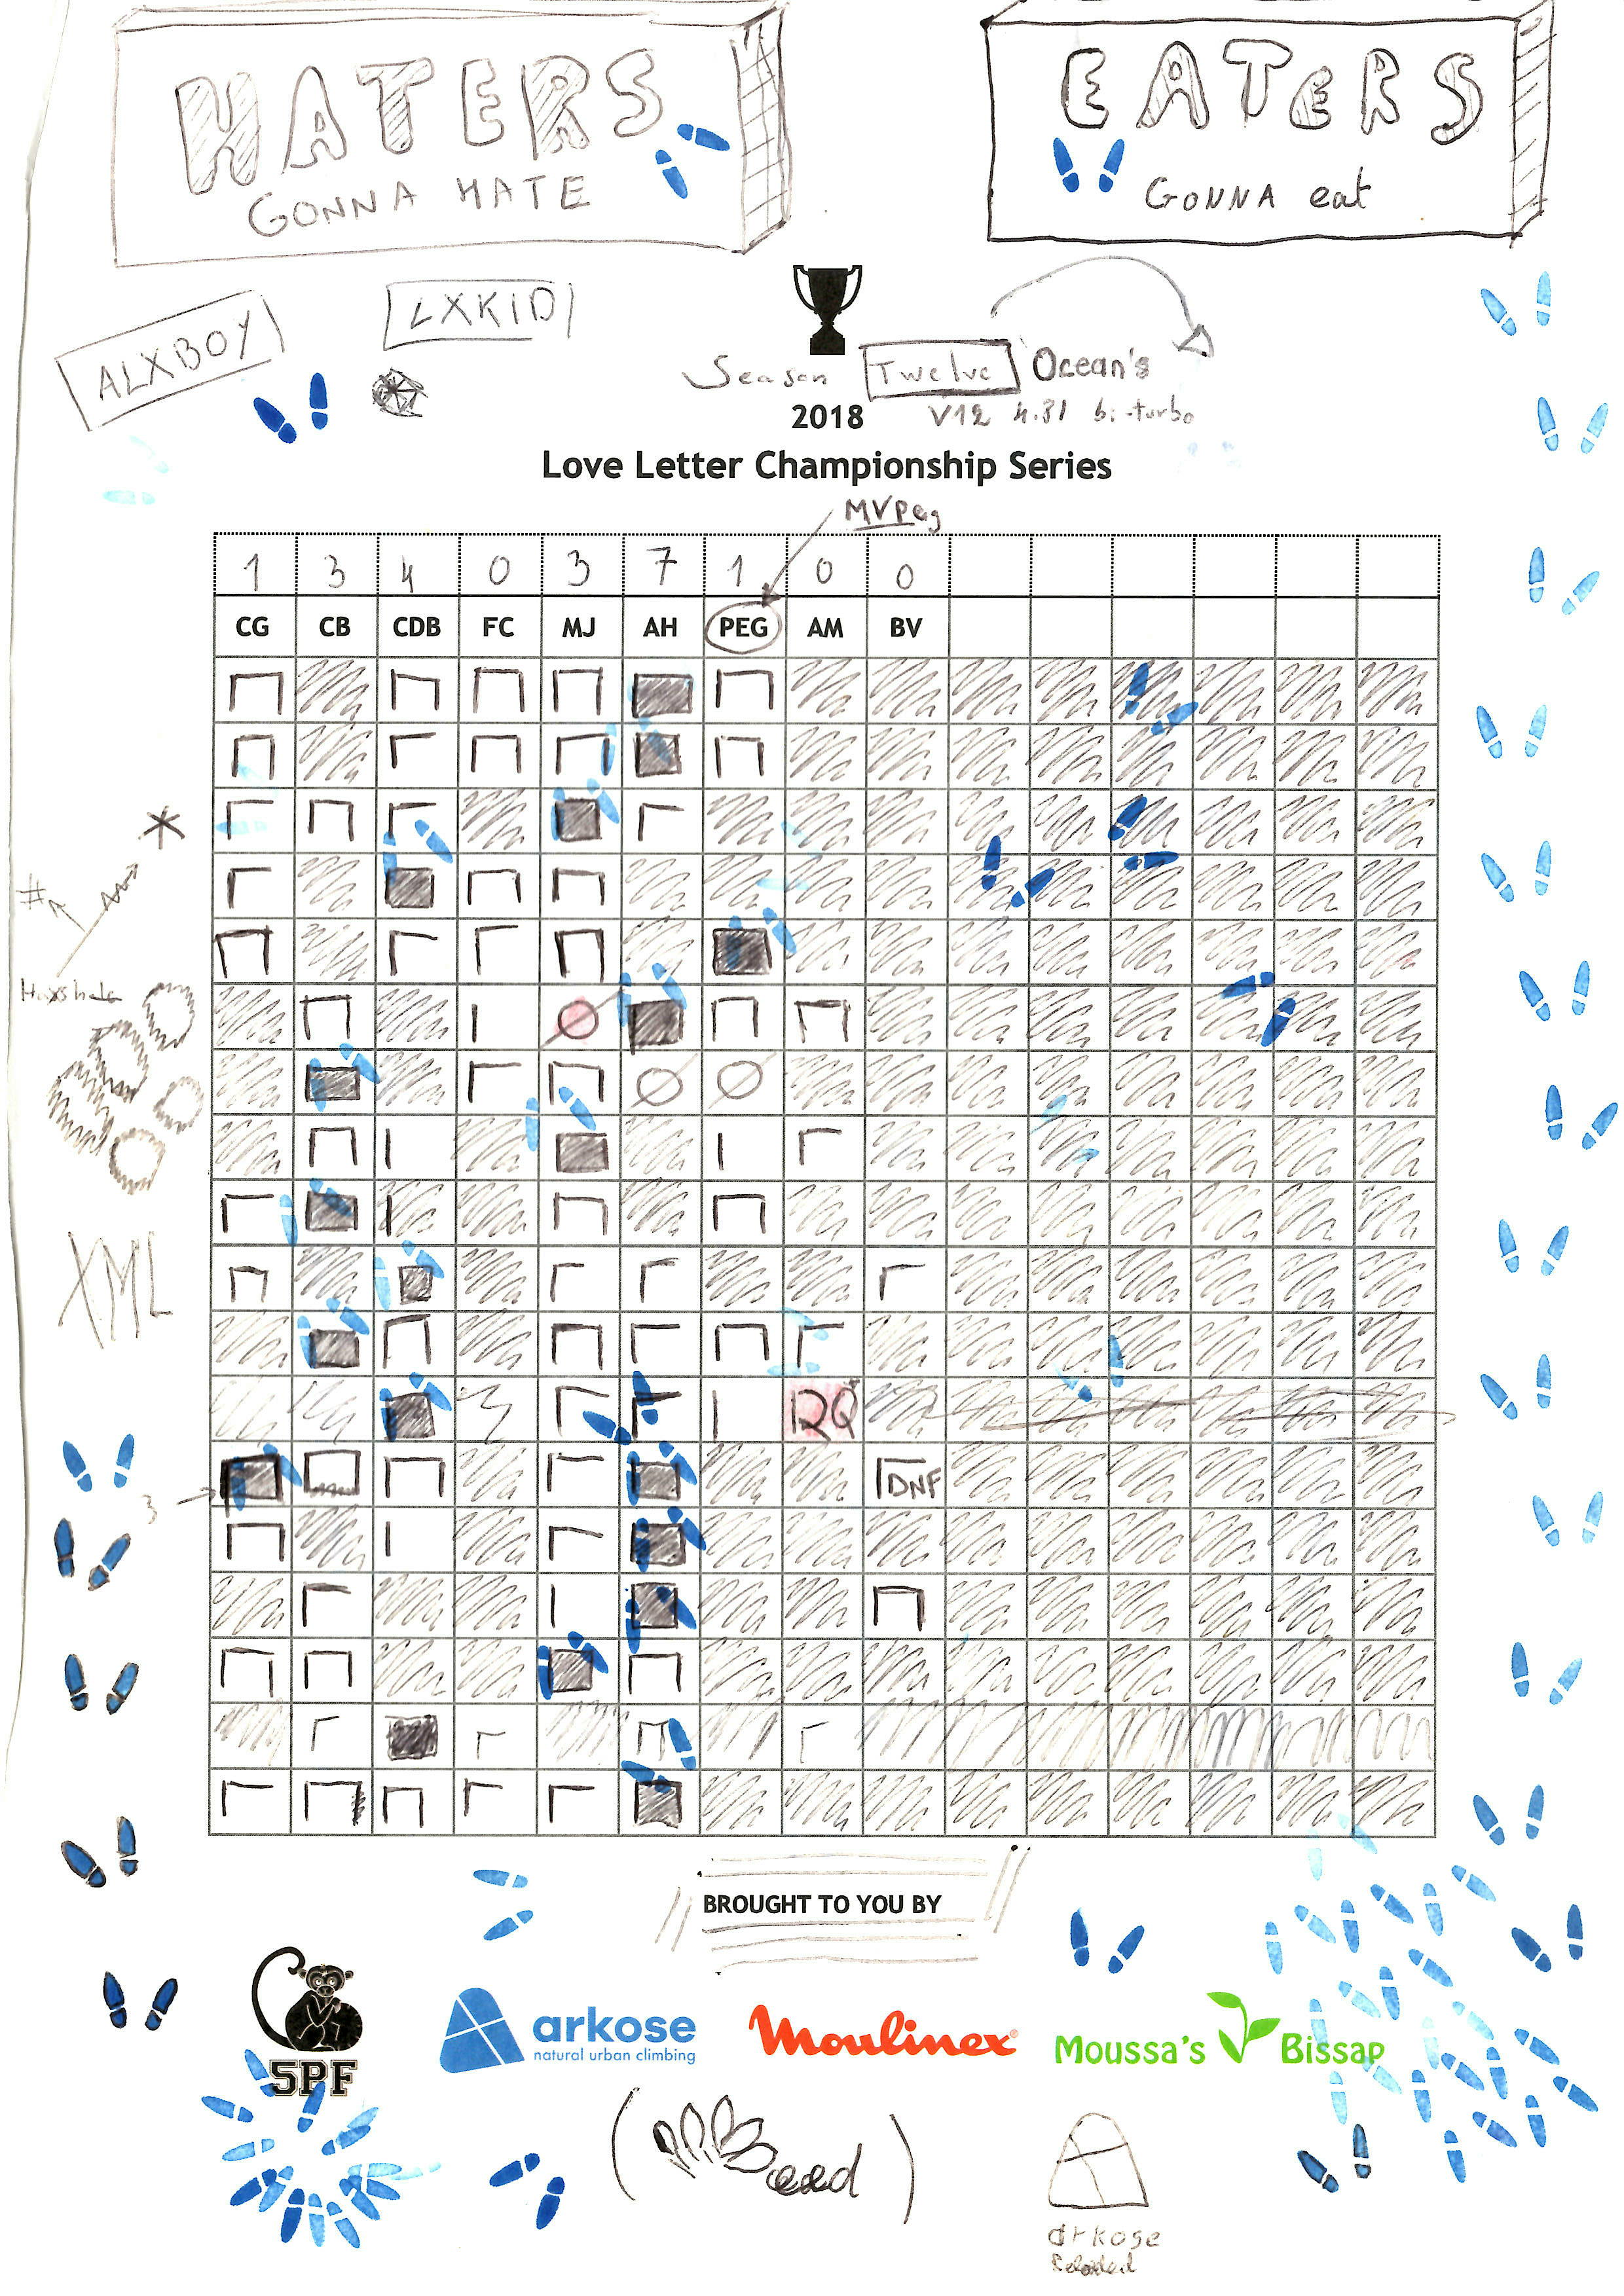 HATERS
GONNA HATE
EATERS
GONNA eat
ALXBOY
LXKID
Season Twelve Ocean's
2018 V12 4.8l bi-turbo
Love Letter Championship Series
MVPeg
1 3 4 0 3 7 1 0 0
CG CB CDB FC MJ AH PEG AM BV
#
XML
RQ
DNF
3
BROUGHT TO YOU BY
5PF
arkose
natural urban climbing
Moulinex
Moussa's Bissap
( eed )
arkose
Reloaded